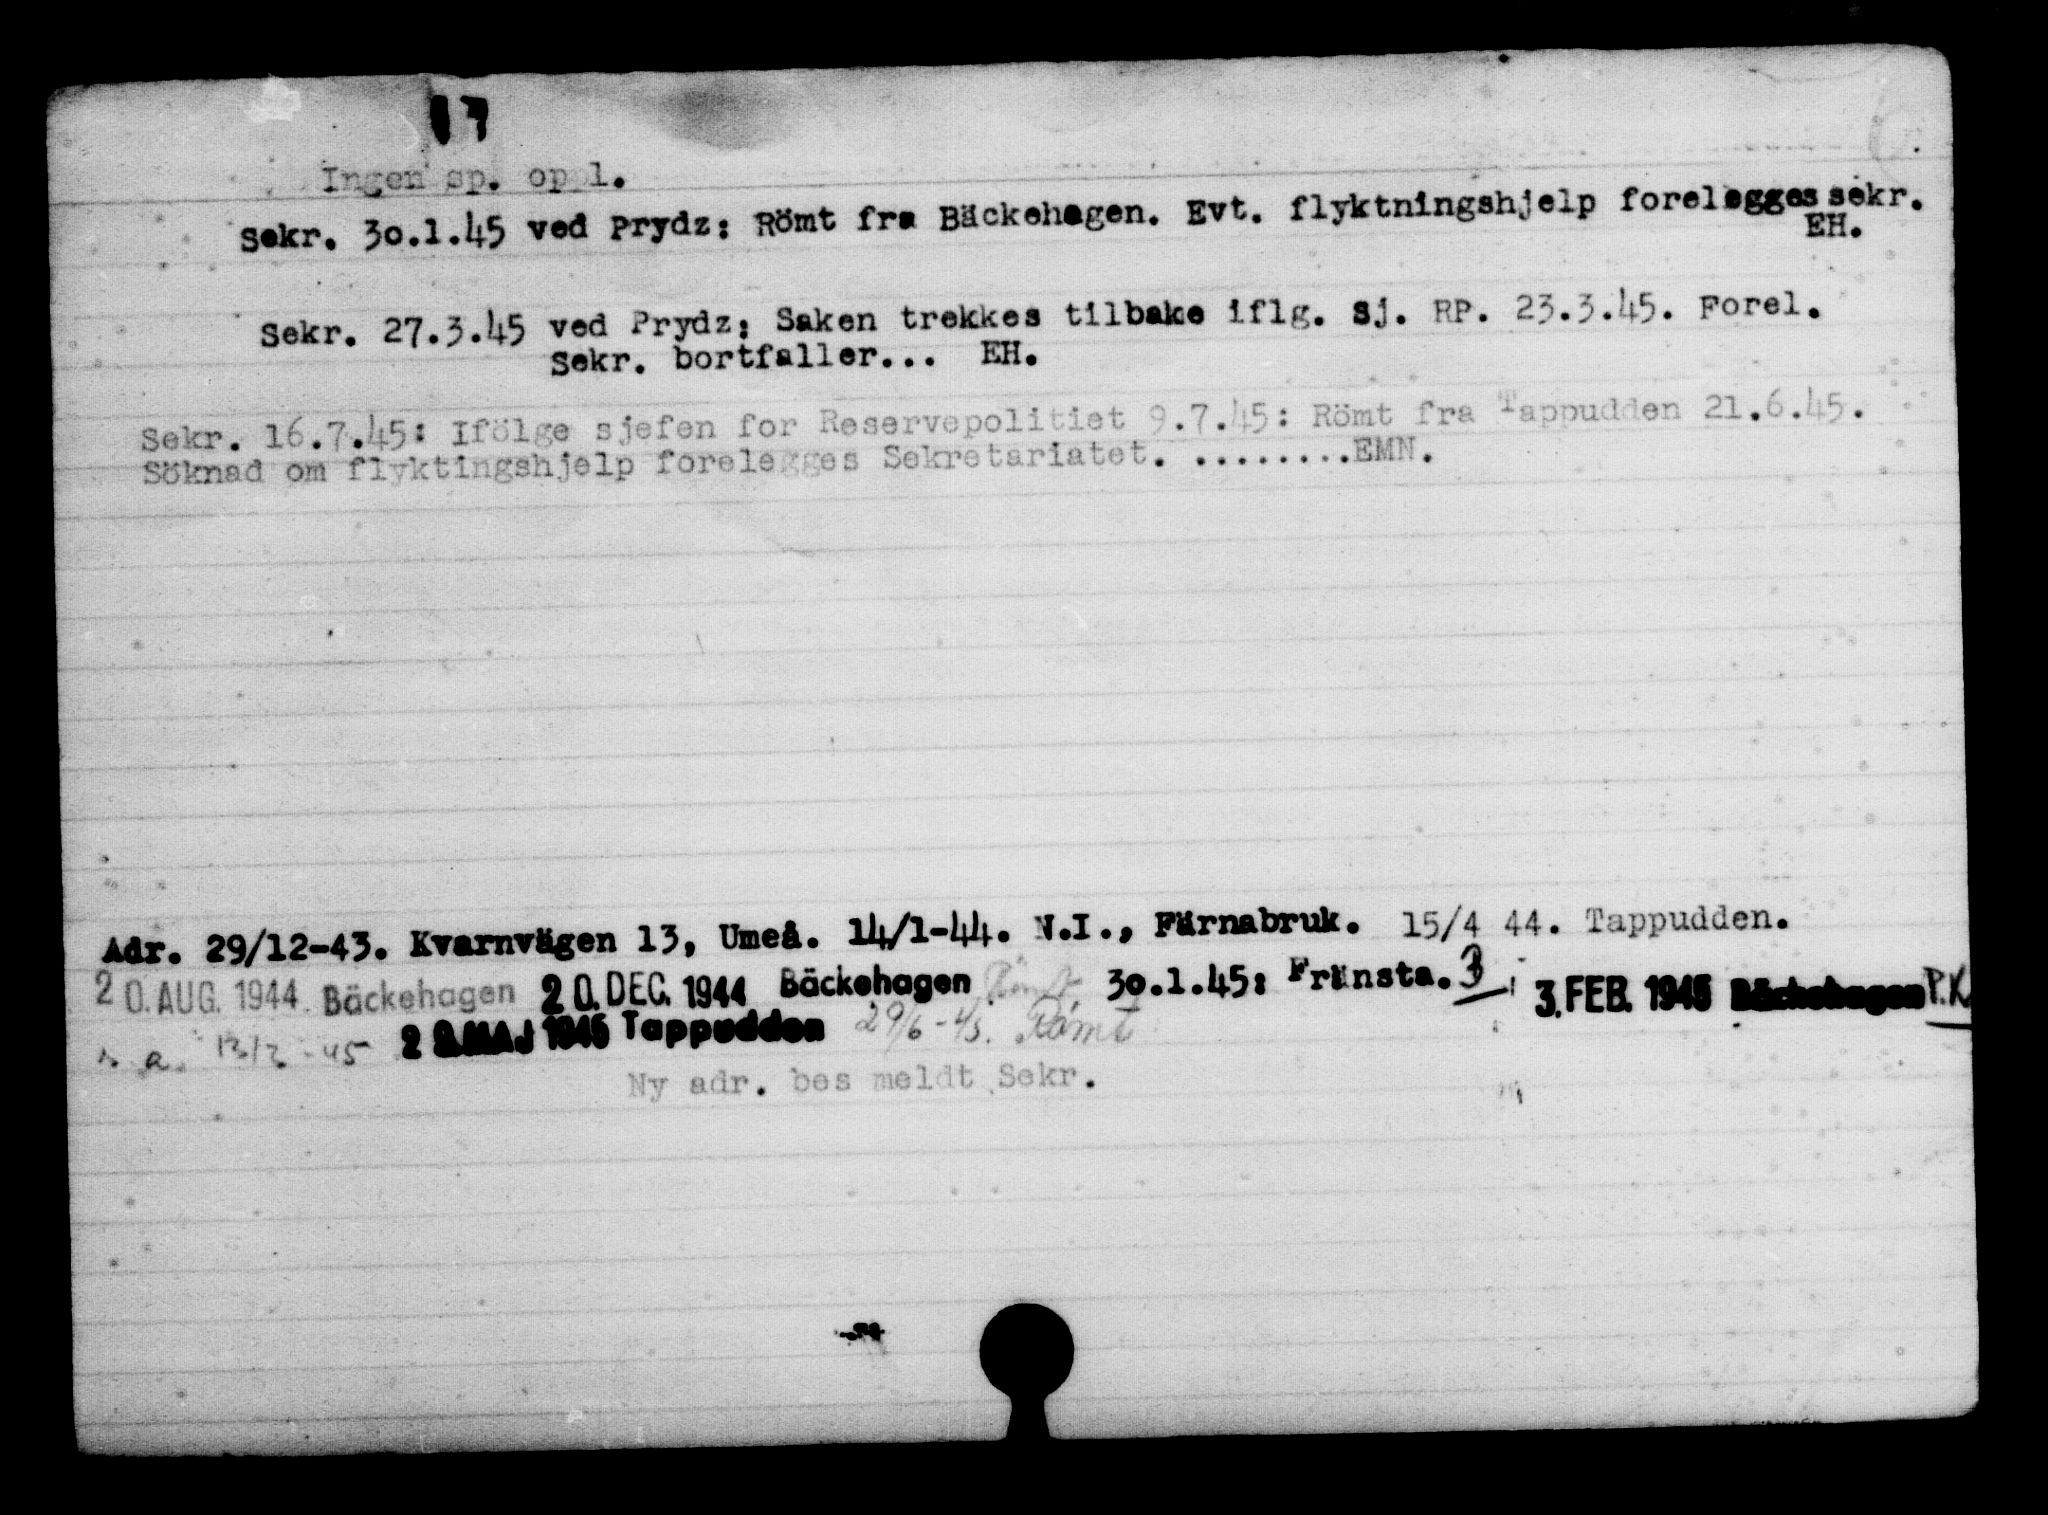 17
Ingen sp. oppl.
Sekr. 30.1.45 ved Prydz: Römt fra Bäckehagen. Evt. flyktningshjelp forelegges sekr.
EH.
Sekr. 27.3.45 ved Prydz: Saken trekkes tilbake iflg. Sj. RP. 23.3.45. Forel.
Sekr. bortfaller... EH.
Sekr. 16.7.45: Ifölge sjefen for Reservepolitiet 9.7.45: Römt fra Tappudden 21.6.45.
Söknad om flyktingshjelp forelegges Sekretariatet. ........EMN.
Adr. 29/12-43. Kvarnvägen 13, Umeå. 14/1-44. N.I., Färnabruk. 15/4 44. Tappudden.
20. AUG. 1944. Bäckehagen 20. DEC. 1944 Bäckehagen Römt 30.1.45: Fränsta. 3. FEB. 1945 Bäckehagen P.K.
a. -45 MAJ 1945 Tappudden 29/6-45. Römt
Ny adr. bes meldt Sekr.